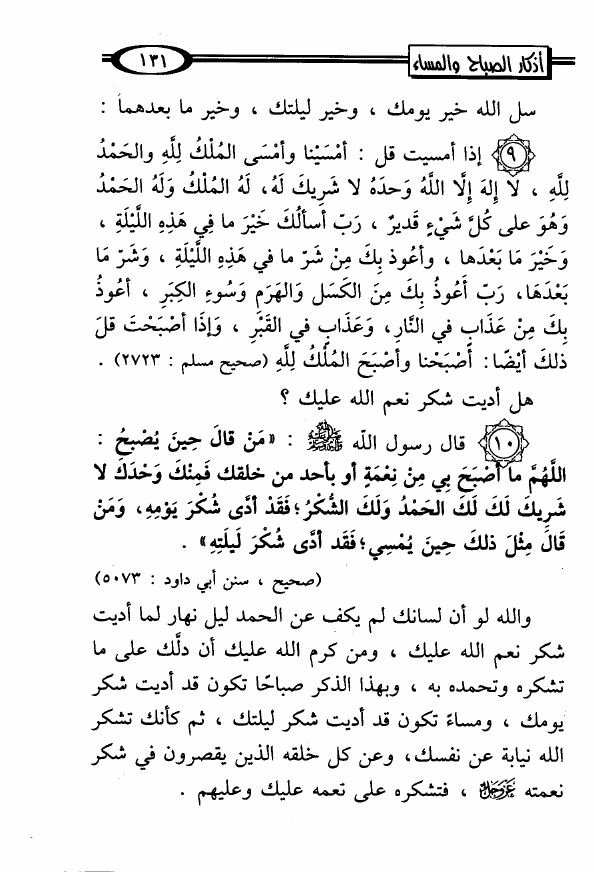 أذكار الصباح والمساء
١٣١
سل الله خير يومك ، وخير ليلتك ، وخير ما بعدهما :
٩ إذا أمسيت قل : أمْسَيْنا وأمْسَى المُلْكُ لِلَّهِ والحَمْدُ
لِلَّهِ ، لا إلهَ إلَّا اللَّهُ وَحدَهُ لا شَرِيكَ لَهُ، لَهُ المُلْكُ وَلَهُ الحَمْدُ
وَهُوَ على كُلِّ شَيْءٍ قَديرٌ ، رَبِّ أسألُكَ خَيْرَ ما فِي هَذِهِ اللَّيْلَةِ ،
وَخَيْرَ مَا بَعْدَها ، وأَعُوذ بِكَ مِنْ شَرِّ ما في هَذِهِ اللَّيْلَةِ ، وَشَرِّ مَا
بَعْدَهَا، رَبِّ أَعُوذُ بِكَ مِنَ الكَسَلِ وَالهَرَمِ وَسُوءِ الكِبَرِ ، أعُوذُ
بِكَ مِنْ عَذَابٍ في النَّارِ، وَعَذَابٍ في القَبْرِ ، وَإذَا أصْبَحْتَ قلَ
ذلكَ أيْضًا: أَصْبَحْنا وأصْبَحَ المُلْكُ لِلَّهِ (صحيح مسلم : ٢٧٢٣) .
هل أديت شكر نعم الله عليك ؟
١٠ قال رسول الله ﷺ : «مَن قالَ حِينَ يُصْبِحُ :
اللَّهُمَّ ما أصْبَحَ بِي مِنْ نِعْمَةٍ أو بأحد من خلقك فَمِنْكَ وَحْدَكَ لا
شَرِيكَ لَكَ لَكَ الحَمْدُ وَلَكَ الشُّكْرُ؛ فَقَدْ أدَّى شُكْرَ يَوْمِهِ، وَمَنْ
قالَ مِثْلَ ذلكَ حِينَ يُمْسِي؛ فَقَد أدَّى شُكْرَ لَيلَتِهِ» .
(صحيح ، سنن أبي داود : ٥٠٧٣)
والله لو أن لسانك لم يكف عن الحمد ليل نهار لما أديت
شكر نعم الله عليك ، ومن كرم الله عليك أن دلَّك على ما
تشكره وتحمده به ، وبهذا الذكر صباحًا تكون قد أديت شكر
يومك ، ومساءً تكون قد أديت شكر ليلتك ، ثم كأنك تشكر
الله نيابة عن نفسك، وعن كل خلقه الذين يقصرون في شكر
نعمته عَزَّ وَجَلَّ ، فتشكره على نعمه عليك وعليهم .